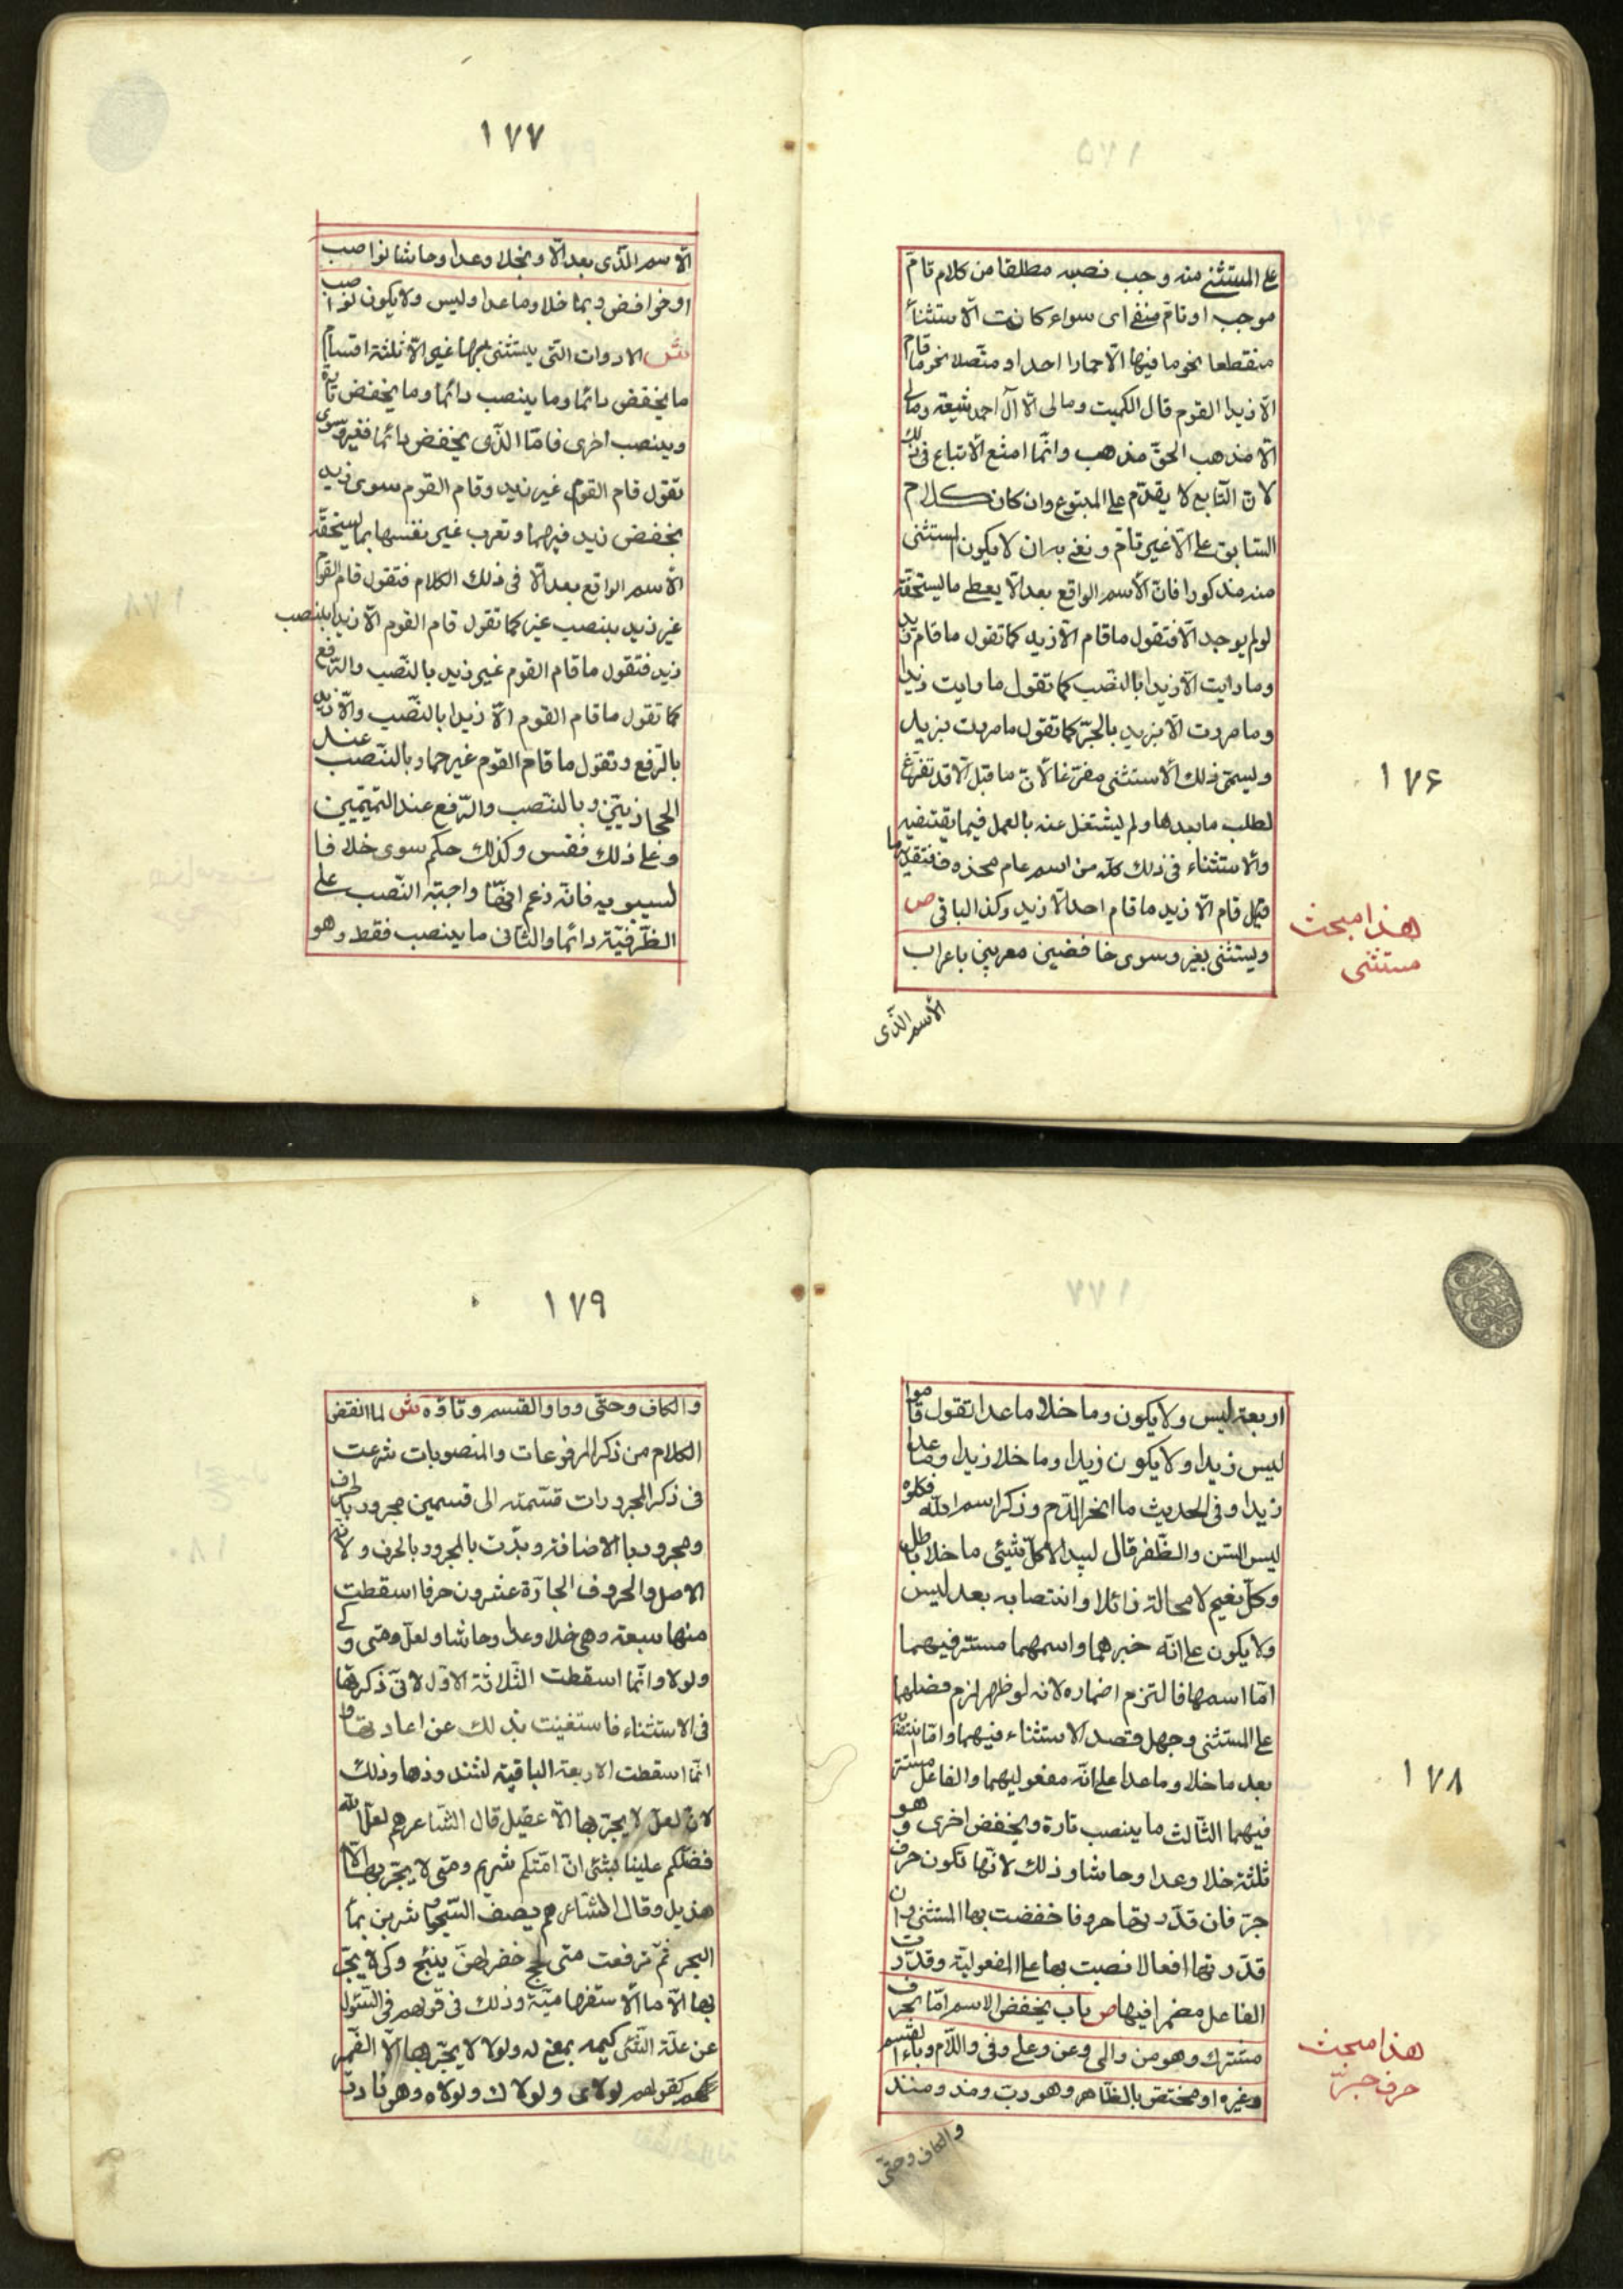 على المستثنى منه وجب نصبه مطلقا من كلام تامّ
موجب او تامّ منفى اى سواء كانت الاستثناء
منقطعا نحو ما فيها الّا حمارا احد او متّصلا نحو ما قام
الّا زيدا القوم قال الكميت ومالى الّا آل احمد شيعة ومالى
الّا مذهب الحقّ مذهب وانّما امتنع الاتباع فى ذلك
لانّ التّابع لا يقدّم على المتبوع وان كان كلام
السّابق على الّا غير تامّ ونعنى به ان لا يكون المستثنى
منه مذكورا فانّ الأسم الواقع بعد الّا يعطى ما يستحقّه
لو لم يوجد الّا فتقول ما قام الّا زيد كما تقول ما قام زيد
وما رايت الّا زيدا بالنّصب كما تقول ما رايت زيدا
وما مررت الّا بزيد بالجرّ كما تقول ما مررت بزيد
ويسمّى ذلك الأستثنى مفرّغا لأنّ ما قبل الّا قد تفرّغ
لطلب ما بعدها ولم يشتغل عنه بالعمل فيما يقتضيه
والاستثناء فى ذلك كلّه من اسم عام محذوف فتقدير ما
قام الّا زيد ما قام احد الّا زيد وكذا الباقى ص
ويستثنى بغير وسوى خافضين معربين باعراب
الأسم الّذى
١٧۶
هذا مبحث
مستثنى
١٧٧
الأسم الّذى بعد الّا وبخلا وعدا وحاشا نواصب
او خوافض وبما خلا وما عدا وليس ولا يكون نواصب
ش الادوات التى يستثنى بها غير الّا ثلثة اقسام
ما يخفض دائما وما ينصب دائما وما يخفض تارة
وينصب اخرى فامّا الّذى يخفض دائما فغير وسوى
تقول قام القوم غير زيد وقام القوم سوى زيد
بخفض زيد فيهما وتعرب غير نفسها بما يستحقّه
الأسم الواقع بعد الّا فى ذلك الكلام فتقول قام القوم
غير زيد بنصب غير كما تقول قام القوم الّا زيدا بنصب
زيد فتقول ما قام القوم غير زيد بالنّصب والرّفع
كما تقول ما قام القوم الّا زيدا بالنّصب والّا زيد
بالرّفع وتقول ما قام القوم غير حمار بالنّصب عند
الحجازييّن وبالنّصب والرّفع عند التميميّين
وعلى ذلك فقس وكذلك حكم سوى خلافا
لسيبويه فانّه زعم انّها واجبة النّصب على
الظّرفيّة دائما والثّانى ما ينصب فقط وهو
اربعة ليس ولا يكون وما خلا ما عدا تقول قاموا
ليس زيدا ولا يكون زيدا وما خلا زيدا وما عدا
زيدا وفى الحديث ما انهر الدّم وذكر اسم اللّه فكلوه
ليس السّن والظّفر قال لبيد الا كلّ شيئى ما خلا باطل
وكلّ نعيم لا محالة زائلا وانتصابه بعد ليس
ولا يكون على انّه خبرهما واسمهما مستتر فيهما
امّا اسمها فالتزم اضماره لانه لو ظهر لزم فصلهما
على المستثنى وجهل قصد الاستثناء فيهما وامّا انتصابه
بعد ما خلا وما عدا على انّه مفعوليهما والفاعل مستتر
فيهما الثّالث ما ينصب تارة ويخفض اخرى وهو
ثلثة خلا وعدا وحاشا وذلك لانّها تكون حرف
جرّ فان قدّرتها حروفا خفضت بها المستثنى وان
قدّرتها افعالا نصبت بها على المفعوليّة وقدّرت
الفاعل مضمرا فيها ص باب يخفض الاسم امّا بحرف
مشترك وهو من والى وعن وعلى وفى واللّام وباء القسم
وغيره او مختصّ بالظّاهر وهو ربّ ومذ ومنذ
والكاف وحتّى
١٧٨
هذا مبحث
حرف جرّ
١٧٩
والكاف وحتّى وواو القسم وتاؤه ش لما انقضى
الكلام من ذكر المرفوعات والمنصوبات شرعت
فى ذكر المجرورات قسّمته الى قسمين مجرور بالحرف
ومجرور با الاضافة وبدّت بالمجرور بالحرف ولانّه
الاصل والحروف الجارّة عشرون حرفا اسقطت
منها سبعة وهى خلا وعدا وحاشا ولعلّ ومتى وكى
ولولا وانّما اسقطت الثّلاثة الاوّل لانّى ذكرتها
فى الاستثناء فاستغنيت بذلك عن اعادتها و
انّما اسقطت الاربعة الباقية لشذوذها وذلك
لانّ لعلّ لا يجرّ بها الّا عقيل قال الشّاعرهم لعلّ اللّه
فضّلكم علينا بشئى انّ امّتكم شريم ومتى لا يجرّ بها الّا
هذيل وقال الشّاعرهم يصف السّحاب شربن بماء
البحر ثمّ ترفعت متى لجج خضر لهنّ ينئج وكى لا يجرّ
بها الّا ما الأستفهاميّة وذلك فى قولهم فى السّئول
عن علّة الشّئى كيمه بمعنى له ولولا لا يجرّ بها الّا الضّمير
كقولهم لولاى ولولاك ولولاه وهو نادر